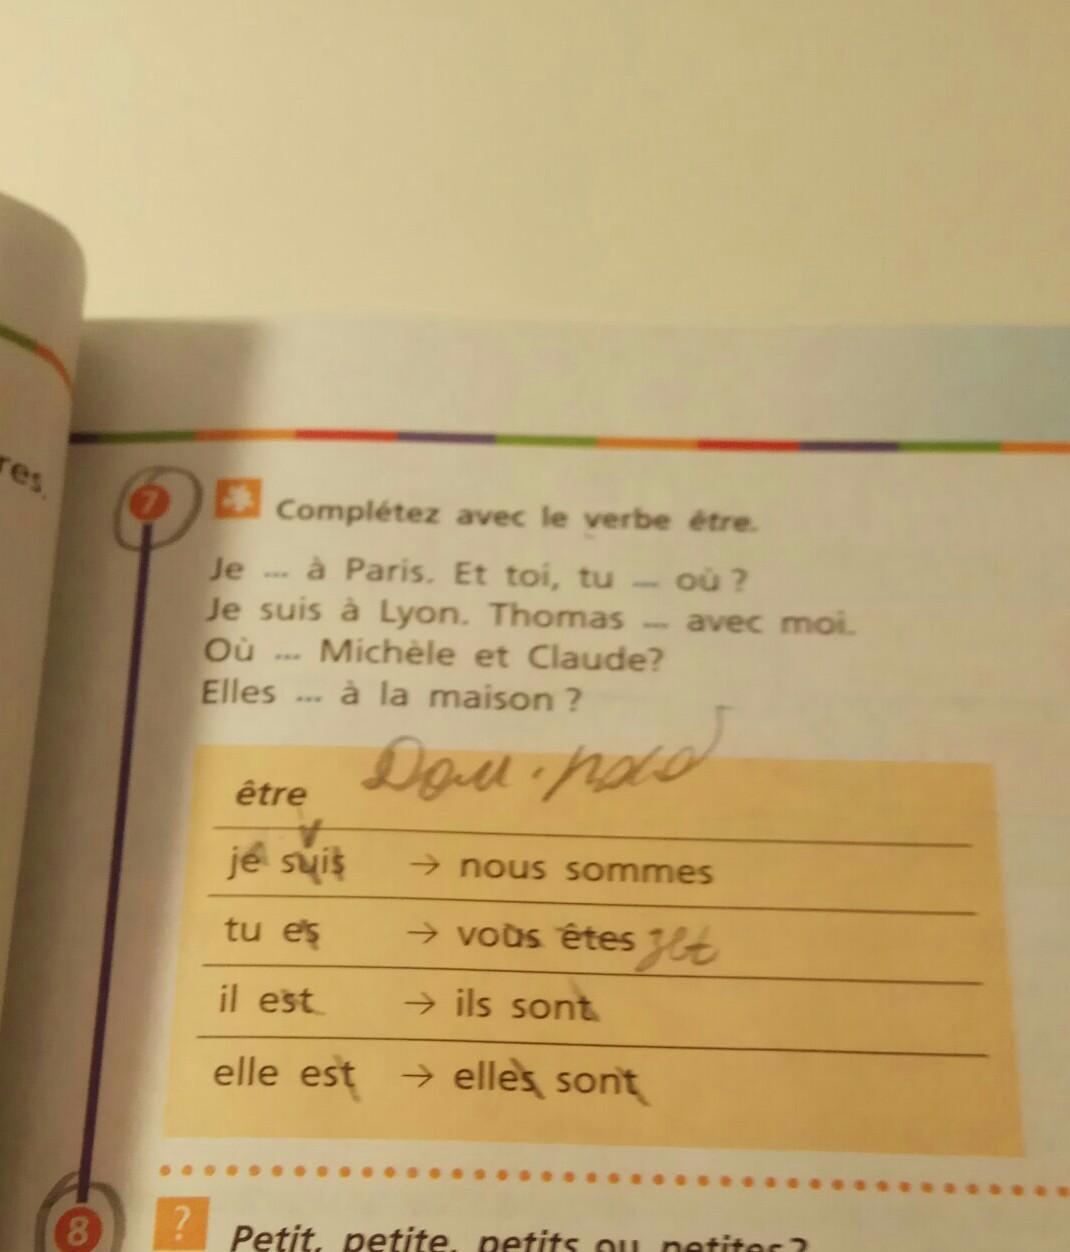 res.
7 Complétez avec le verbe être.
Je ... à Paris. Et toi, tu ... où ?
Je suis à Lyon. Thomas ... avec moi.
Où ... Michèle et Claude?
Elles ... à la maison ?
être
je suis → nous sommes
tu es → vous êtes
il est → ils sont
elle est → elles sont
8 ? Petit, petite, petits ou petites?